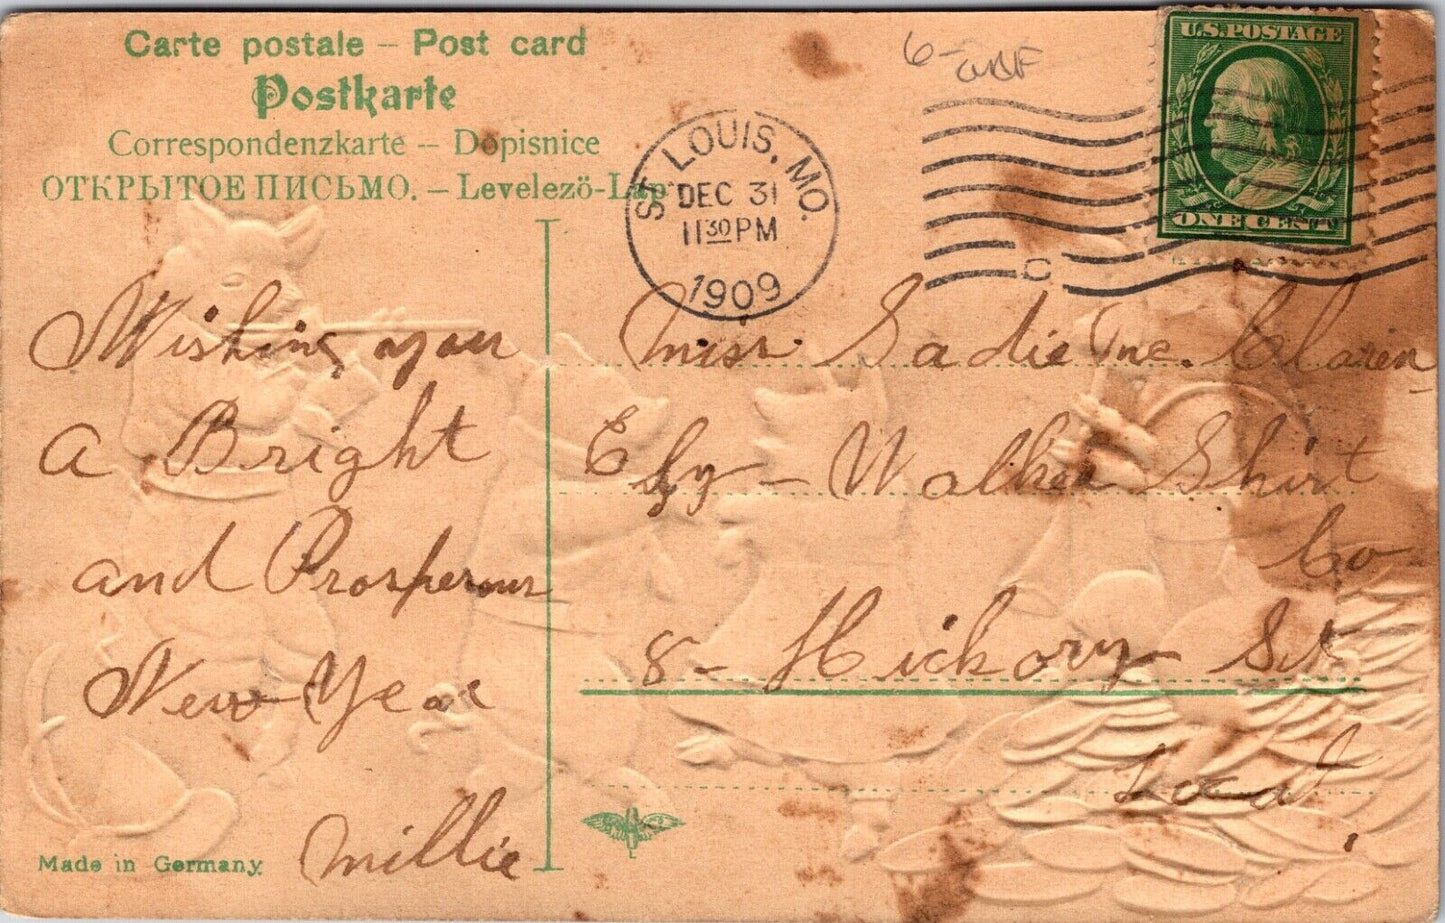 Carte postale – Post card
Postkarte
Correspondenzkarte – Dopisnice
ОТКРЫТОЕ ПИСЬМО. – Levelezö-Lap.
6-
ST. LOUIS, MO.
DEC 31
11 30 PM
1909
U.S. POSTAGE
ONE CENT
C
Wishing you
a Bright
and Prosperous
New Year
Millie
Miss Sadie Mc. Claren
Ely – Walker Shirt
Co
8 – Hickory St.
Local
Made in Germany.